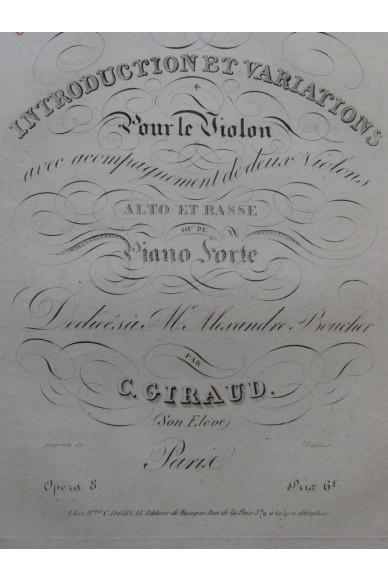 INTRODUCTION ET VARIATIONS
Pour le Violon
avec acompagnement de deux Violons
ALTO ET BASSE
OU DE
Piano Forte
Dediées à Mr. Alexandre Boucher
PAR
C. GIRAUD.
(Son Eleve)
propriété de
Paris
Opera 8. Prix 6f
Chez Mme C. DORVAL Editeur de Musique Rue de la Paix